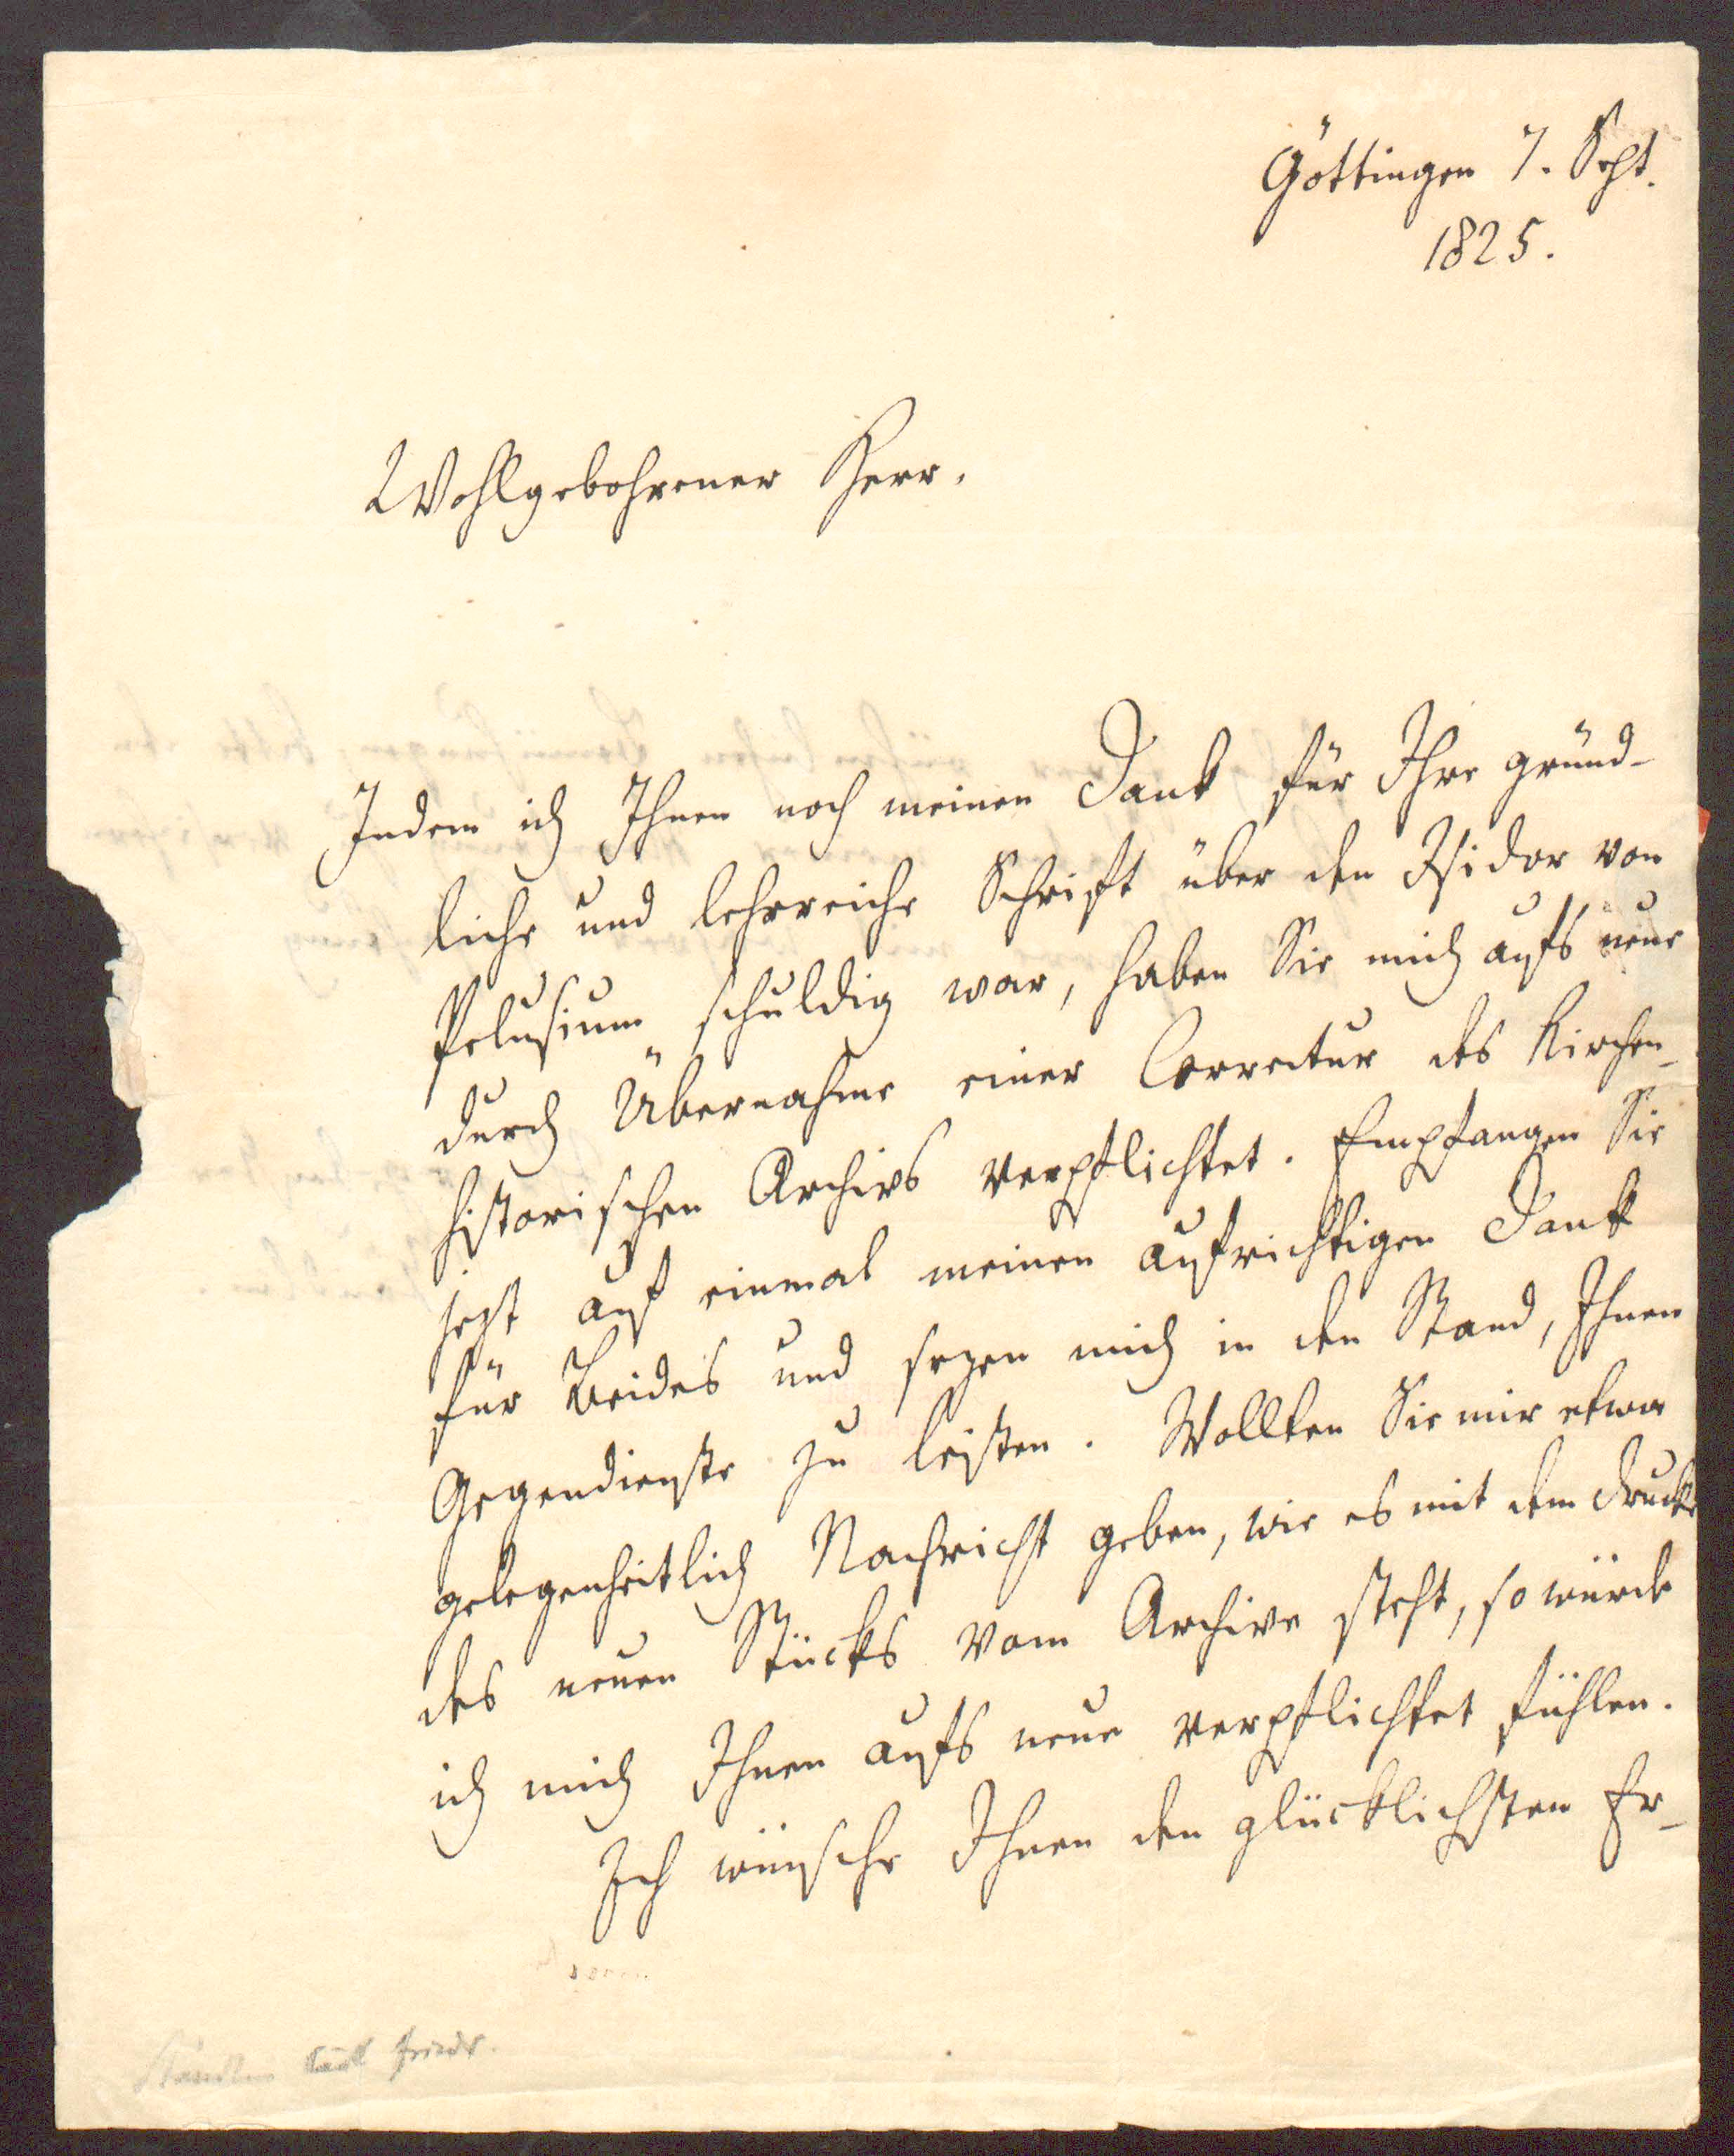 Göttingen 7. Sept.
1825.
Wohlgebohrener Herr,
Indem ich Ihnen noch meinen Dank für Ihre gründ-
liche und lehrreiche Schrift über den Isidor von
Pelusium schuldig war, haben Sie mich aufs neue
durch Übernahme einer Correctur des Kirchen-
historischen Archivs verpflichtet. Empfangen Sie
jezt auf einmal meinen aufrichtigen Dank
für Beides und sezen mich in den Stand, Ihnen
Gegendienste zu leisten. Wollten Sie mir etwa
gelegenheitlich Nachricht geben, wie es mit dem Drucke
des neuen Stücks vom Archive steht, so würde
ich mich Ihnen aufs neue verpflichtet fühlen.
Ich wünsche Ihnen den glücklichsten Er-
Stäudlin Karl Friedr.